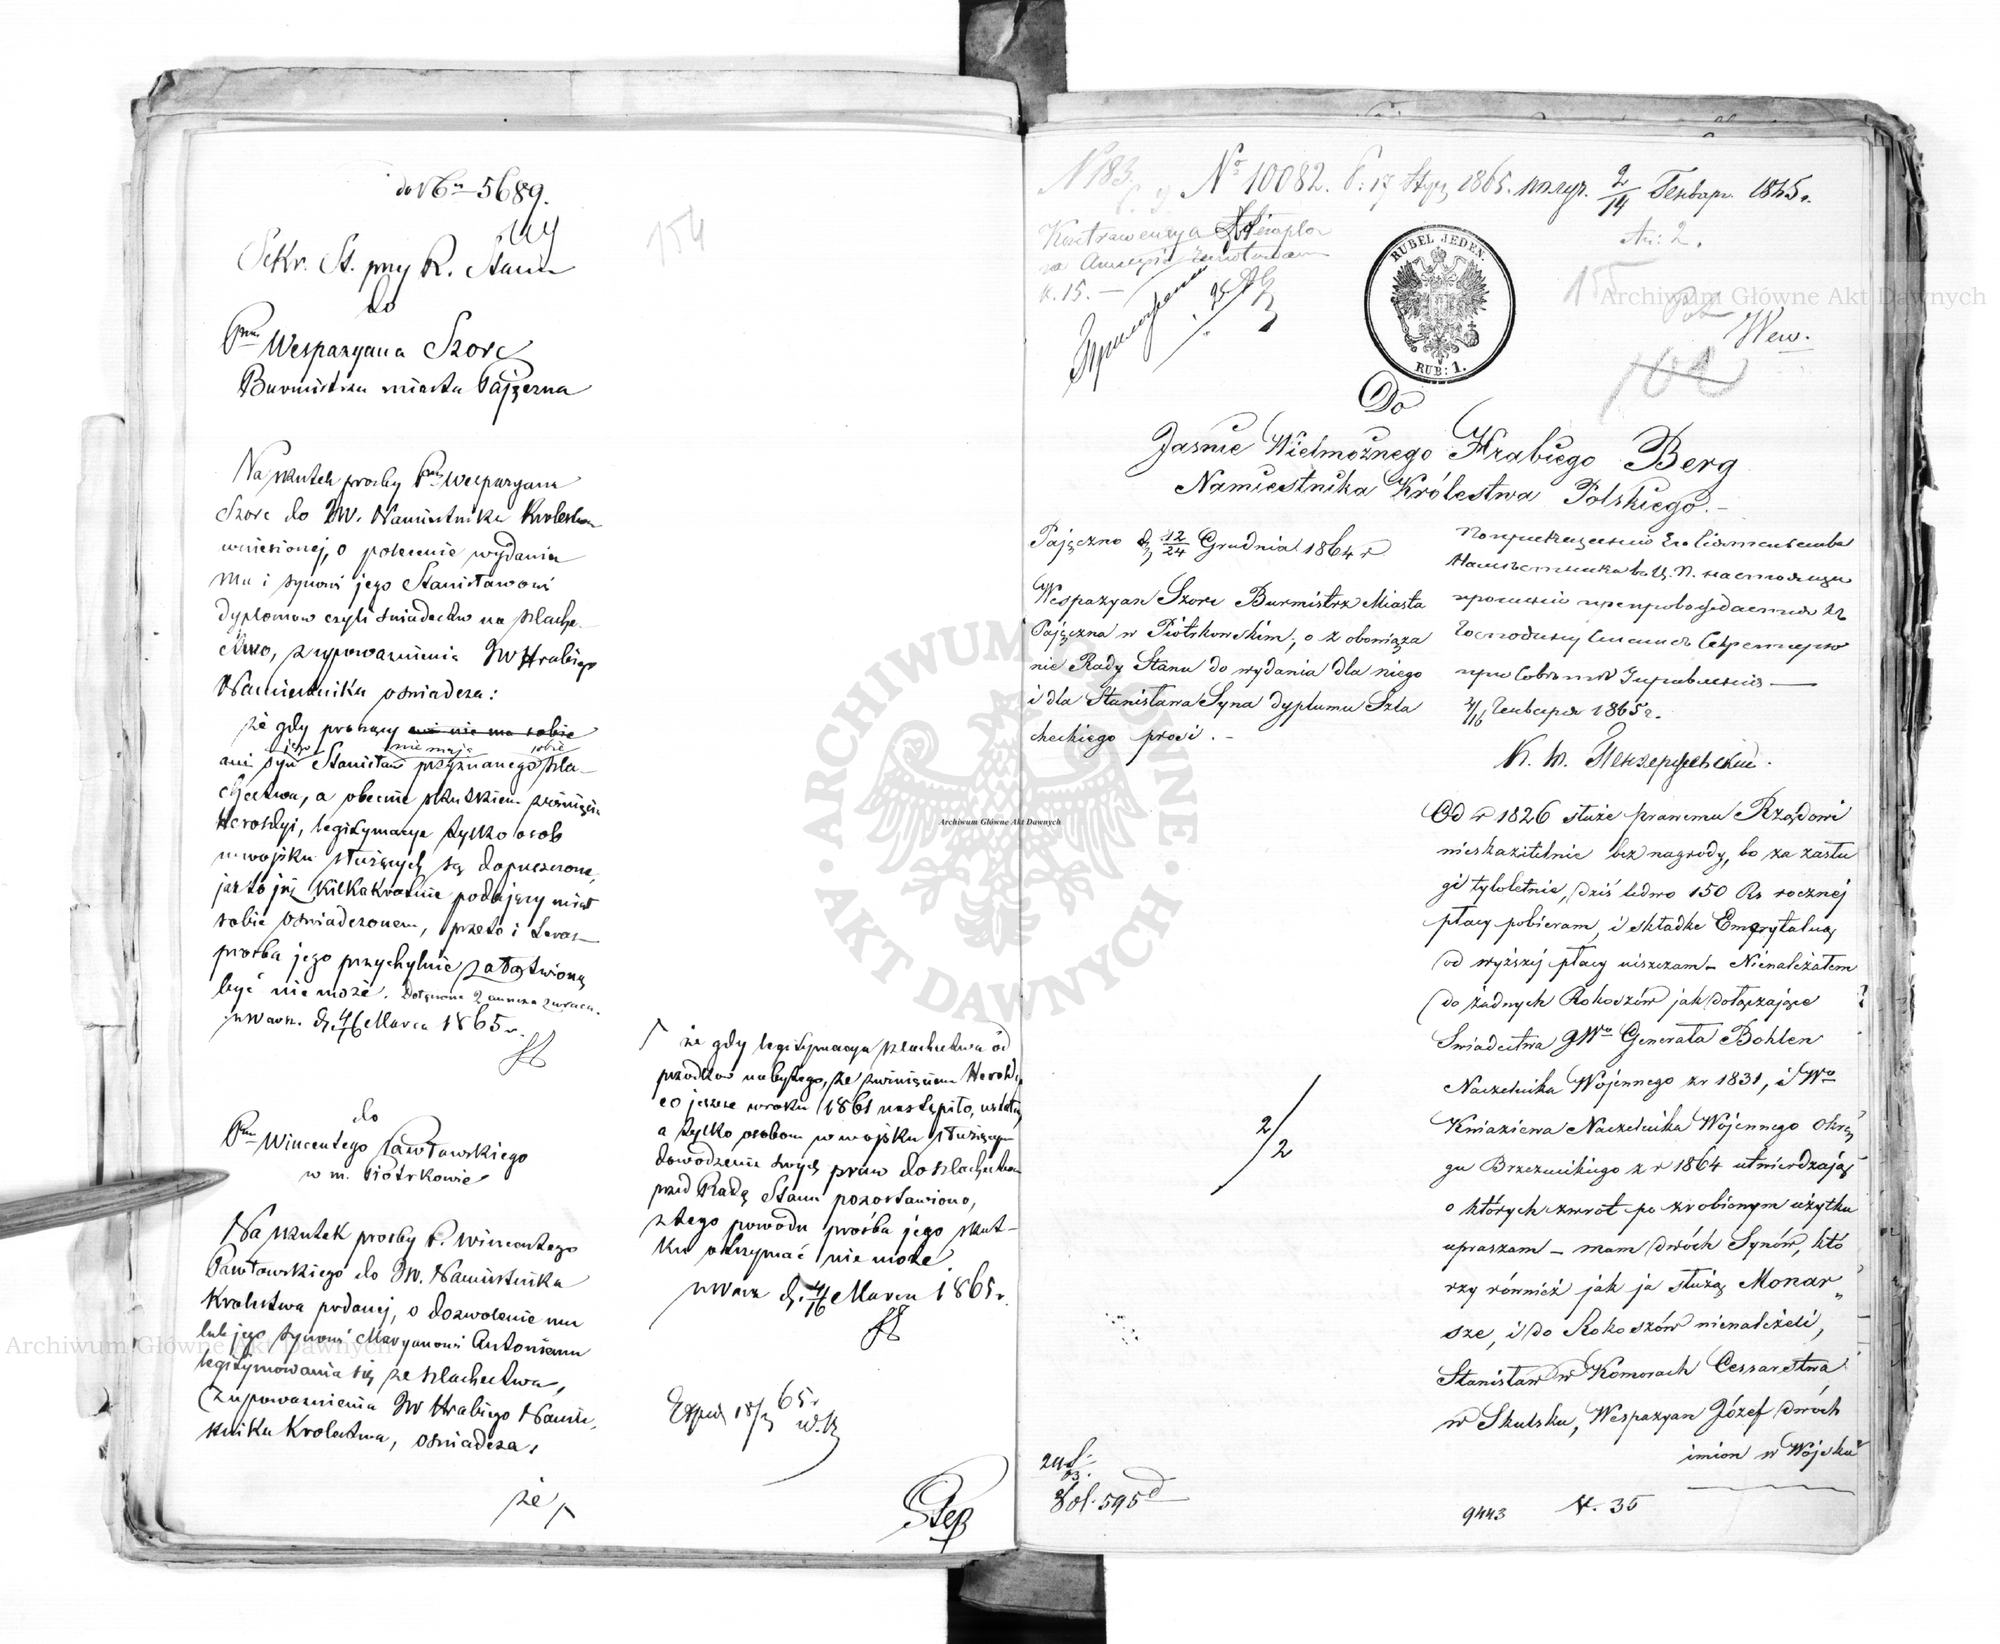 do N 5689.
154
Sekr. St. przy R. Stanu
do
Pana Wespazyana Szorc
Burmistrza miasta Pajęczna
Na skutek prośby Pana Wespazyana
Szorc do JW. Namiestnika Królestwa
wniesionej, o polecenie wydania
mu i synowi jego Stanisławowi
dyplomów czyli świadectw na szlache-
ctwo, z upoważnienia JW Hrabiego
Namiestnika oświadcza:
że gdy proszący ani nie ma sobie
jego nie mają sobie
ani syn Stanisław przyznanego szla-
chectwa, a obecnie skutkiem zwinięcia
Heroldyi, legitymacye tylko osób
w wojsku służących są dopuszczone,
jak to już kilkakrotnie podający miał
sobie oświadczonem, przeto i teraz
prośba jego przychylnie załatwioną
być nie może. Dołączone 2 annexa zwraca.
w Warsz. d. 4/16 Marca 1865 r.
do
Pana Wincentego Pawłowskiego
w m. Piotrkowie
Na skutek prośby P. Wincentego
Pawłowskiego do JW. Namiestnika
Królestwa podanej, o dozwolenie mu
lub jego synowi Maryanowi Antoniemu
legitymowania się ze szlachectwa,
z upoważnienia JW Hrabiego Namie-
stnika Królestwa, oświadcza,
że
że gdy legitymacya szlachectwa od
przodków nabytego, ze zwinięciem Heroldyi
co jeszcze w roku 1861 nastąpiło, ustała,
a tylko osobom w wojsku służącym
dowodzenie swych praw do szlachectwa
przed Radą Stanu pozostawiono,
z tego powodu prośba jego skut-
ku otrzymać nie może.
w Warsz d. 4/16 Marca 1865 r.
Exped 18/3 65 r
Step
N 183.
No 10082. 17 Stycz 1865. получ. 2/14 Генвар. 1865 г.
Kontrawencya Stempla
na Annexie
k. 15. —
An: 2.
155
RUBEL JEDEN.
RUB: 1.
Wew.
102
Do
Jaśnie Wielmożnego Hrabiego Berg
Namiestnika Królestwa Polskiego.—
Pajęczno d. 12/24 Grudnia 1864 r
Wespazyan Szorc Burmistrz Miasta
Pajęczna w Piotrkowskim; o zobowiąza
nie Rady Stanu do wydania dla niego
i dla Stanisława Syna dyplumu Szla
checkiego prosi.—
По приказанию Его Сіятельства
Намѣстника въ Ц. П. настоящее
прошеніе препровождается къ
Господину Статсъ Секретарю
при Совѣтѣ Управленія —
4/16 Генваря 1865 г.
Od r 1826 służe prawemu Rządowi
nieskazitelnie bez nagrody, bo za zasłu
gi tyloletnie, dziś ledwo 150 Rs rocznej
płacy pobieram, i składke Emerytalną
od wyższej płacy uiszczam – Nienależałem
do żadnych Rokoszów jak dołączające
Swiadectwa JWo Generała Bohlen
Naczelnika Wojennego z r 1831, i Wo
Kniaziewa Naczelnika Wojennego Okrę
gu Brzeznickiego z r 1864 utwierdzają
o których zwrot po zrobionym użytku
upraszam – mam dwóch Synów, któ
rzy również jak ja służą Monar„
sze, i do Rokoszów nienależeli,
Stanisław w Komorach Cessarstwa
w Skulsku, Wespazyan Józef dwóch
imion w Wojsku
2/2
Vol. 595
9443
N. 35
Archiwum Główne Akt Dawnych
Archiwum Główne Akt Dawnych
Archiwum Główne Akt Dawnych
ARCHIWUM GŁÓWNE
AKT DAWNYCH